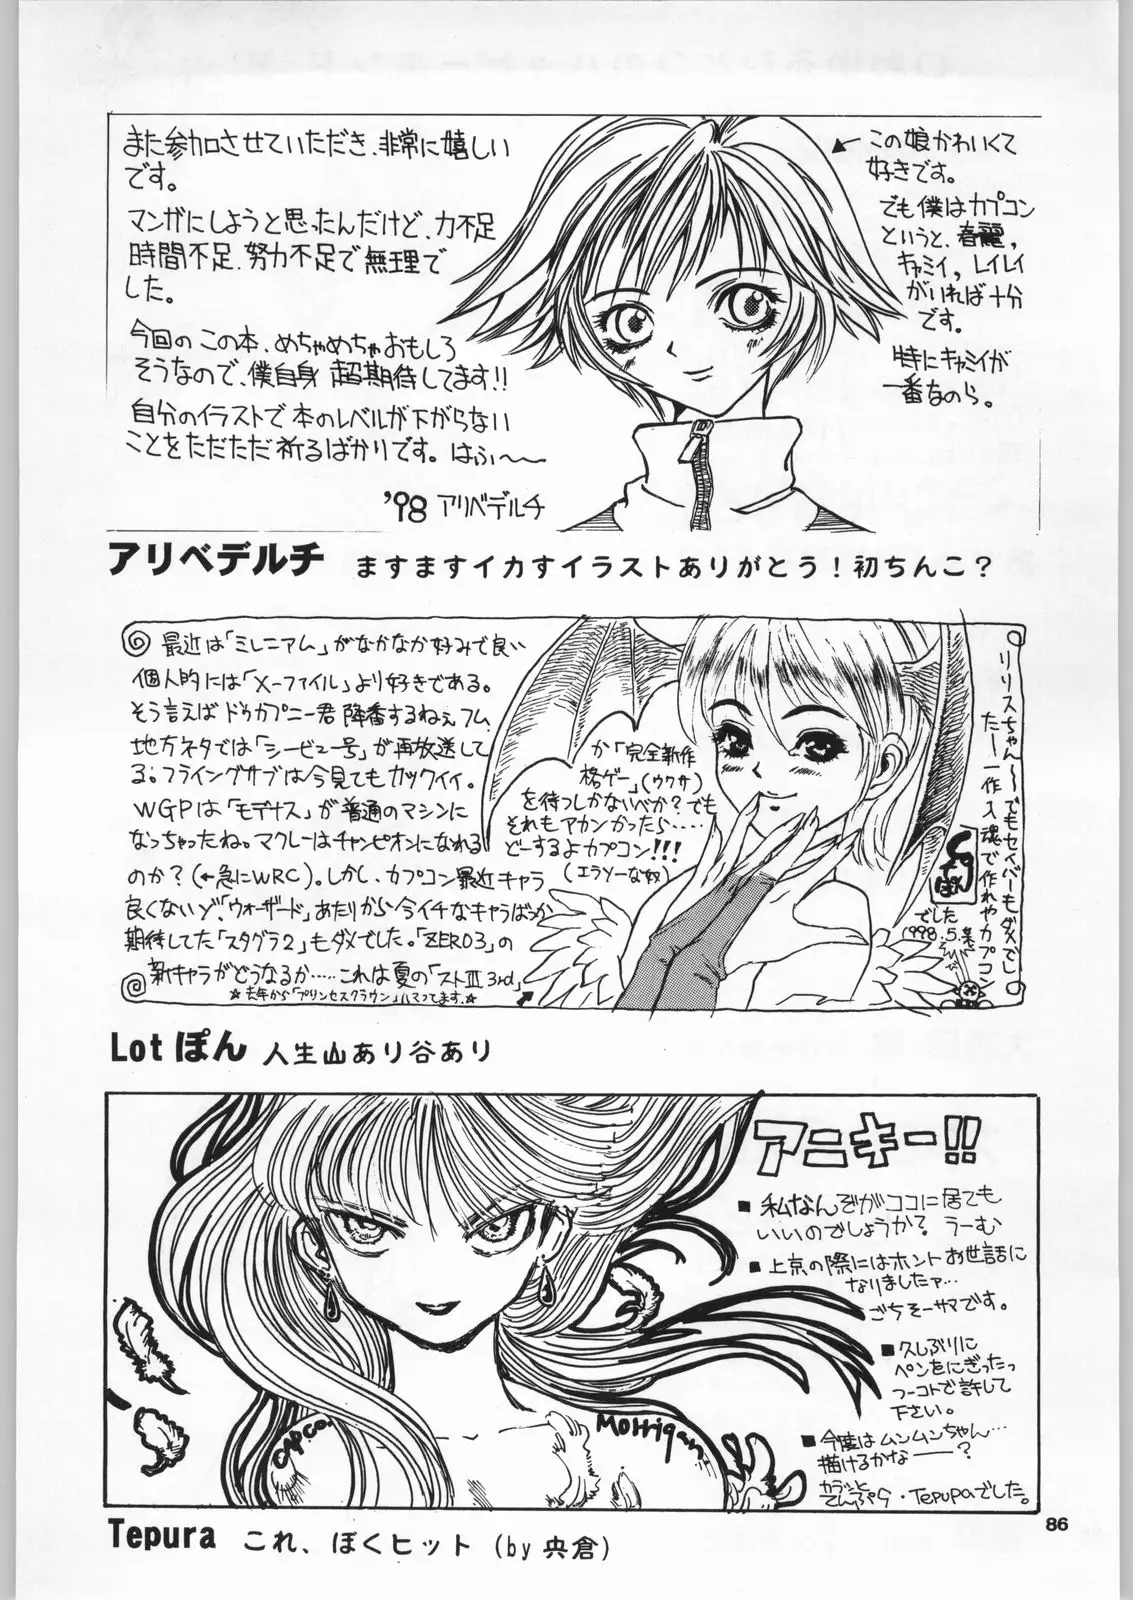 また参加させていただき、非常に嬉しい
です。
マンガにしようと思ったんだけど、力不足
時間不足、努力不足で無理で
した。
今回のこの本、めちゃめちゃおもしろ
そうなので、僕自身 超期待してます!!
自分のイラストで本のレベルが下がらない
ことをただただ祈るばかりです。はふ〜〜
'98 アリベデルチ
この娘かわいくて
好きです。
でも僕はカプコン
というと、春麗,
キャミイ, レイレイ
がいれば十分
です。
特にキャミイが
一番なのら。
アリベデルチ ますますイカすイラストありがとう！初ちんこ？
最近は「ミレニアム」がなかなか好みで良い
個人的には「X-ファイル」より好きである。
そう言えばドゥカプニー君 降番するねぇ フム
地方ネタでは「シービュー号」が再放送して
る。フライングサブは今見てもカックイイ。
WGPは「モデナス」が普通のマシンに
なっちゃったね。マクレーはチャンピオンになれる
のか?(←急にWRC)。しかし、カプコン最近キャラ
良くないゾ、「ウォーザード」あたりから今イチなキャラばっか
期待してた「スタグラ2」もダメでした。「ZERO3」の
新キャラがどうなるか……これは夏の「ストIII 3rd」
☆去年から「プリンセスクラウン」ハマってます。☆
か「完全新作
格ゲー」(ウワサ)
を待つしかないべか?でも
それもアカンかったら……
どーするよカプコン!!!
(エラソーな奴)
リリスちゃん〜〜でもセイバーもダメでし
たー 一作入魂で作れやカプコン
ぽん
でした
1998.5.
Lotぽん 人生山あり谷あり
アニキー!!
■私なんぞがココに居ても
いいのでしょうか? うーむ
■上京の際にはホントお世話に
なりましたァ…
ごちそーサマです。
■久しぶりに
ペンをにぎったっ
つーコトで許して
下さい。
■今度はムンムンちゃん…
描けるかな――?
カラッと
てんぷら・Tepuraでした。
CAPCO.
Morrigan.
Tepura これ、ぼくヒット（by 央倉）
86